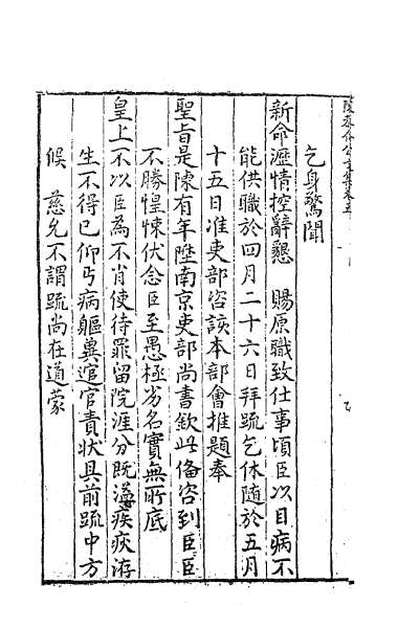 陳恭介公文集卷五
乞身驚聞
新命瀝情控辭懇　賜原職致仕事頃臣以目病不
能供職於四月二十六日拜疏乞休隨於五月
十五日准吏部咨該本部會推題奉
聖旨是陳有年陞南京吏部尚書欽此備咨到臣臣
不勝惶悚伏念臣至愚極劣名實無所底
皇上不以臣為不肖使待罪留院涯分既溢疾疢洊
生不得已仰丐病軀冀逭官責狀具前疏中方
候　慈允不謂疏尚在道蒙